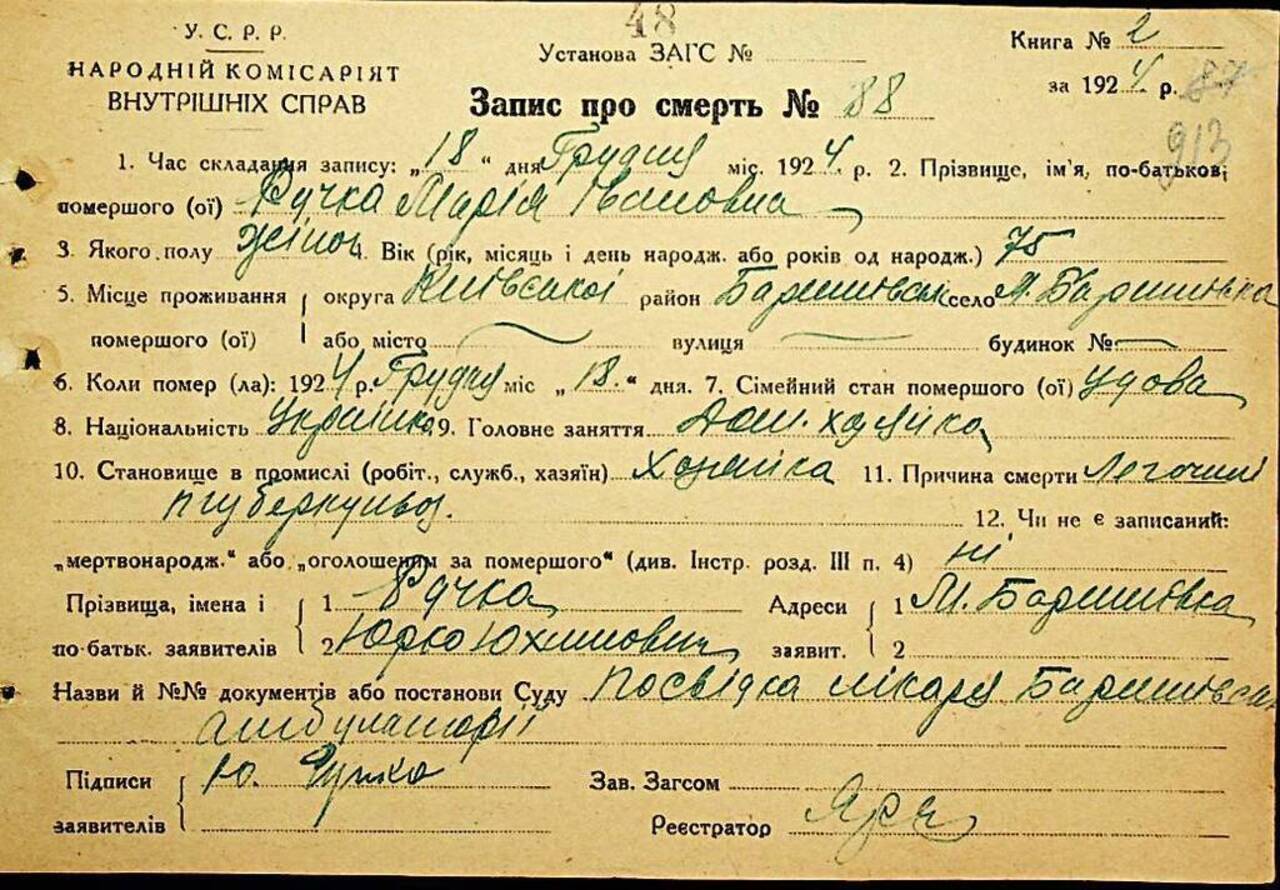 48
У. С. Р. Р.
НАРОДНІЙ КОМІСАРІЯТ
ВНУТРІШНІХ СПРАВ
Установа ЗАГС №
Книга № 2
за 1924 р. 87
Запис про смерть № 88
913
1. Час складання запису: „18“ дня Грудня міс. 1924 р. 2. Прізвище, ім'я, по-батькові
помершого (ої) Ручка Марія Івановна
3. Якого полу жіноч 4. Вік (рік, місяць і день народж. або років од народж.) 75
5. Місце проживання округа Київської район Баришівськ село М. Баришівка
помершого (ої) або місто вулиця будинок №
6. Коли помер (ла): 1924 р. Грудня міс „18.“ дня. 7. Сімейний стан помершого (ої) удова
8. Національність Українка 9. Головне заняття Дом. хазяйка
10. Становище в промислі (робіт., служб., хазяїн) Хозяйка 11. Причина смерти Легочний
туберкульоз.
12. Чи не є записаний:
„мертвонародж.“ або „оголошеним за помершого“ (див. Інстр. розд. III п. 4) ні
Прізвища, імена і 1 Ручка Адреси 1 М. Баришівка
по-батьк. заявителів 2 Юрко Юхимович заявит. 2
Назви й №№ документів або постанови Суду Посвідка лікаря Баришівськ
амбулаторії
Підписи Ю. Ручка Зав. Загсом
заявителів Реєстратор